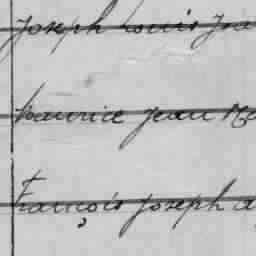 Joseph Louis Jea
Maurice Jean
François Joseph A